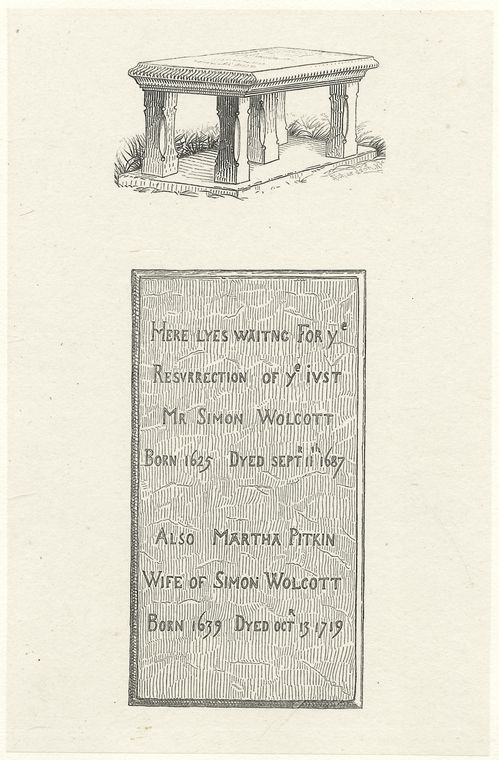 HERE LYES WAITNG FOR yᵉ
RESVRRECTION OF yᵉ iVST
MR SIMON WOLCOTT
BORN 1625 DYED SEPTᴿ 11ᵗʰ 1687
ALSO MARTHA PITKIN
WIFE OF SIMON WOLCOTT
BORN 1639 DYED OCTᴿ 13 1719